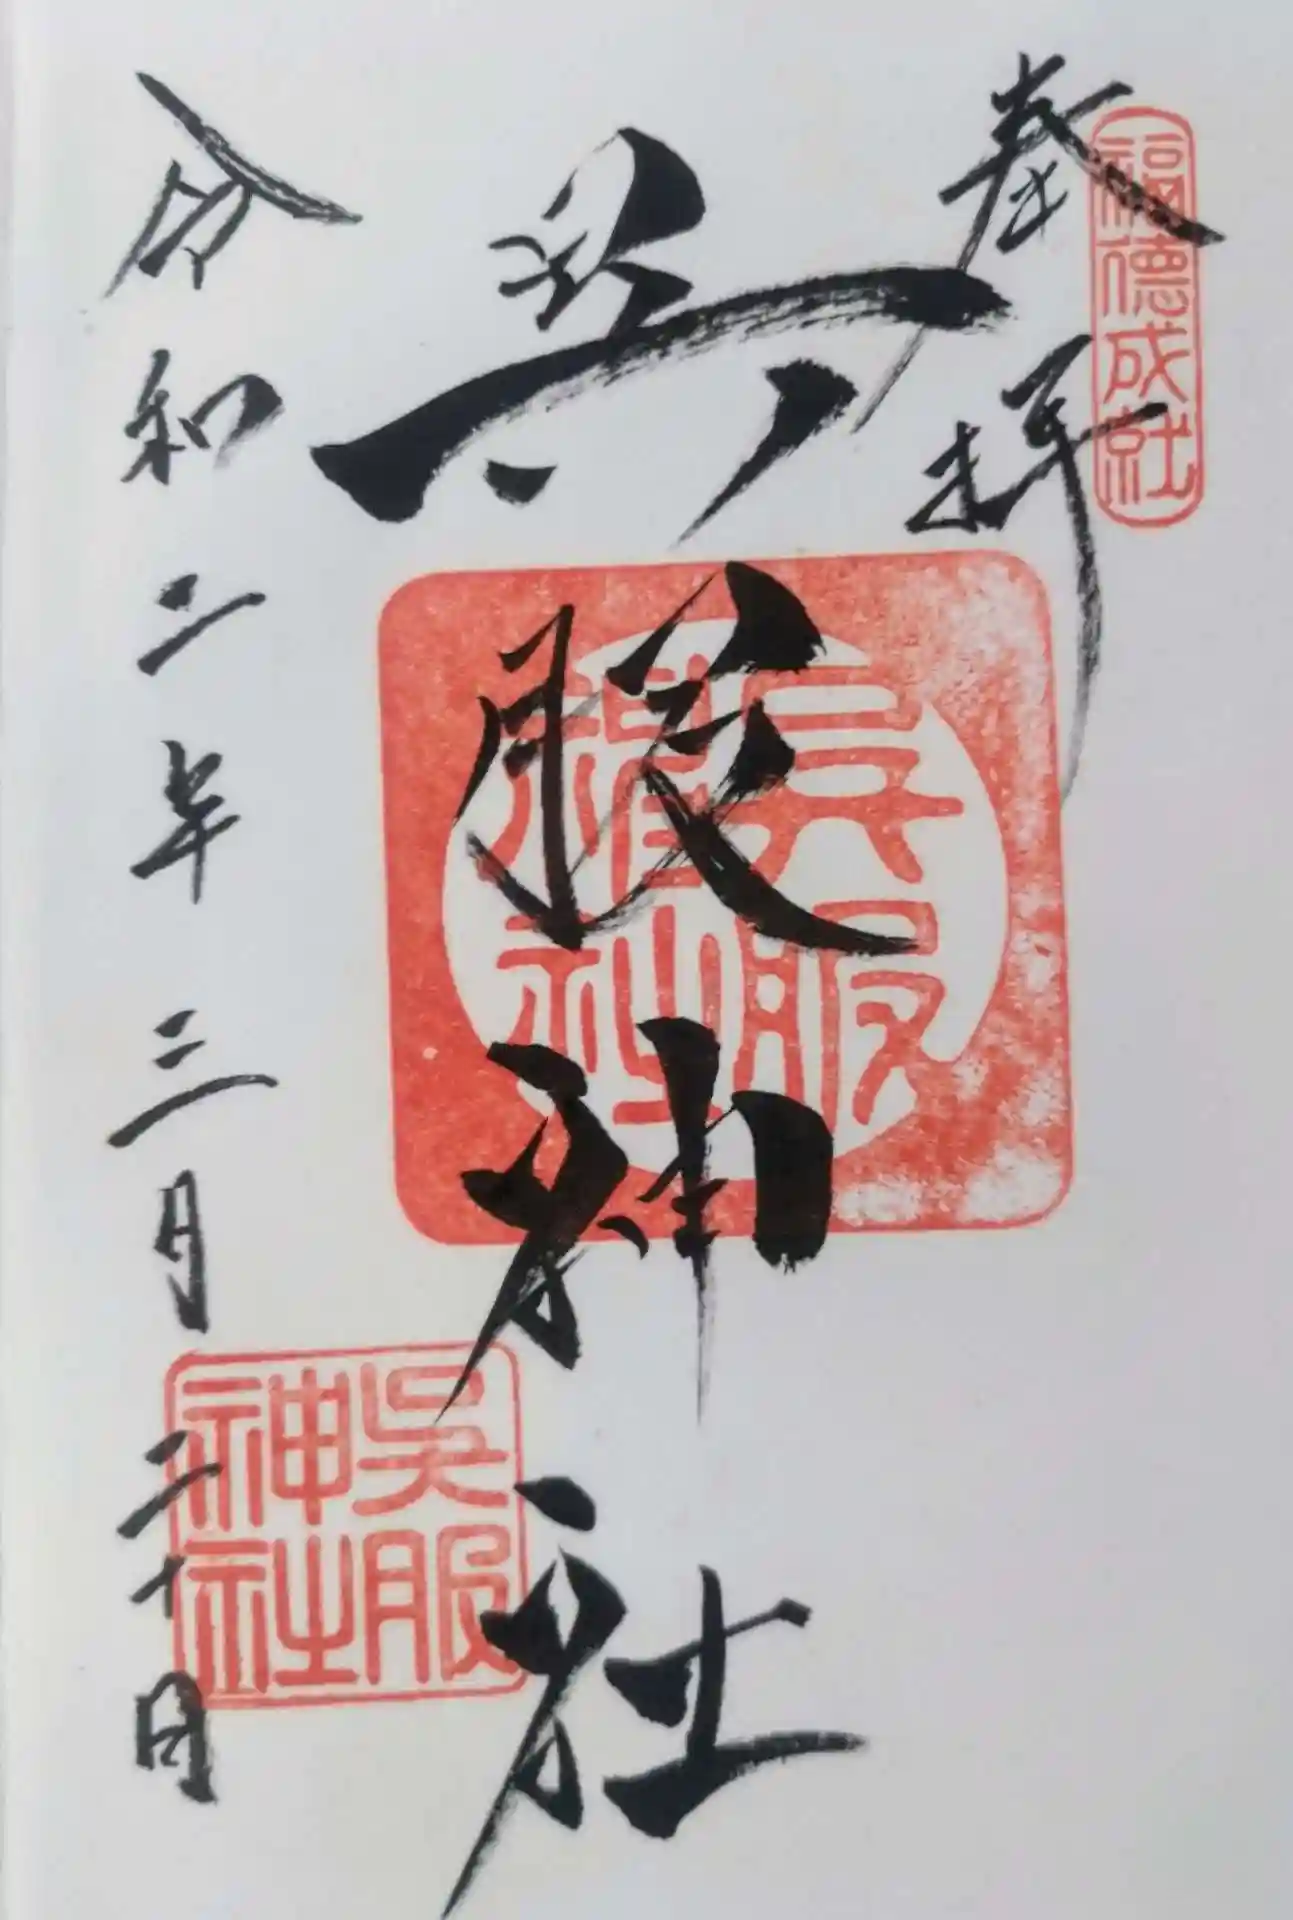 奉拝
福徳成就
呉服神社
呉服
神社
呉服
神社
令和二年三月二十日